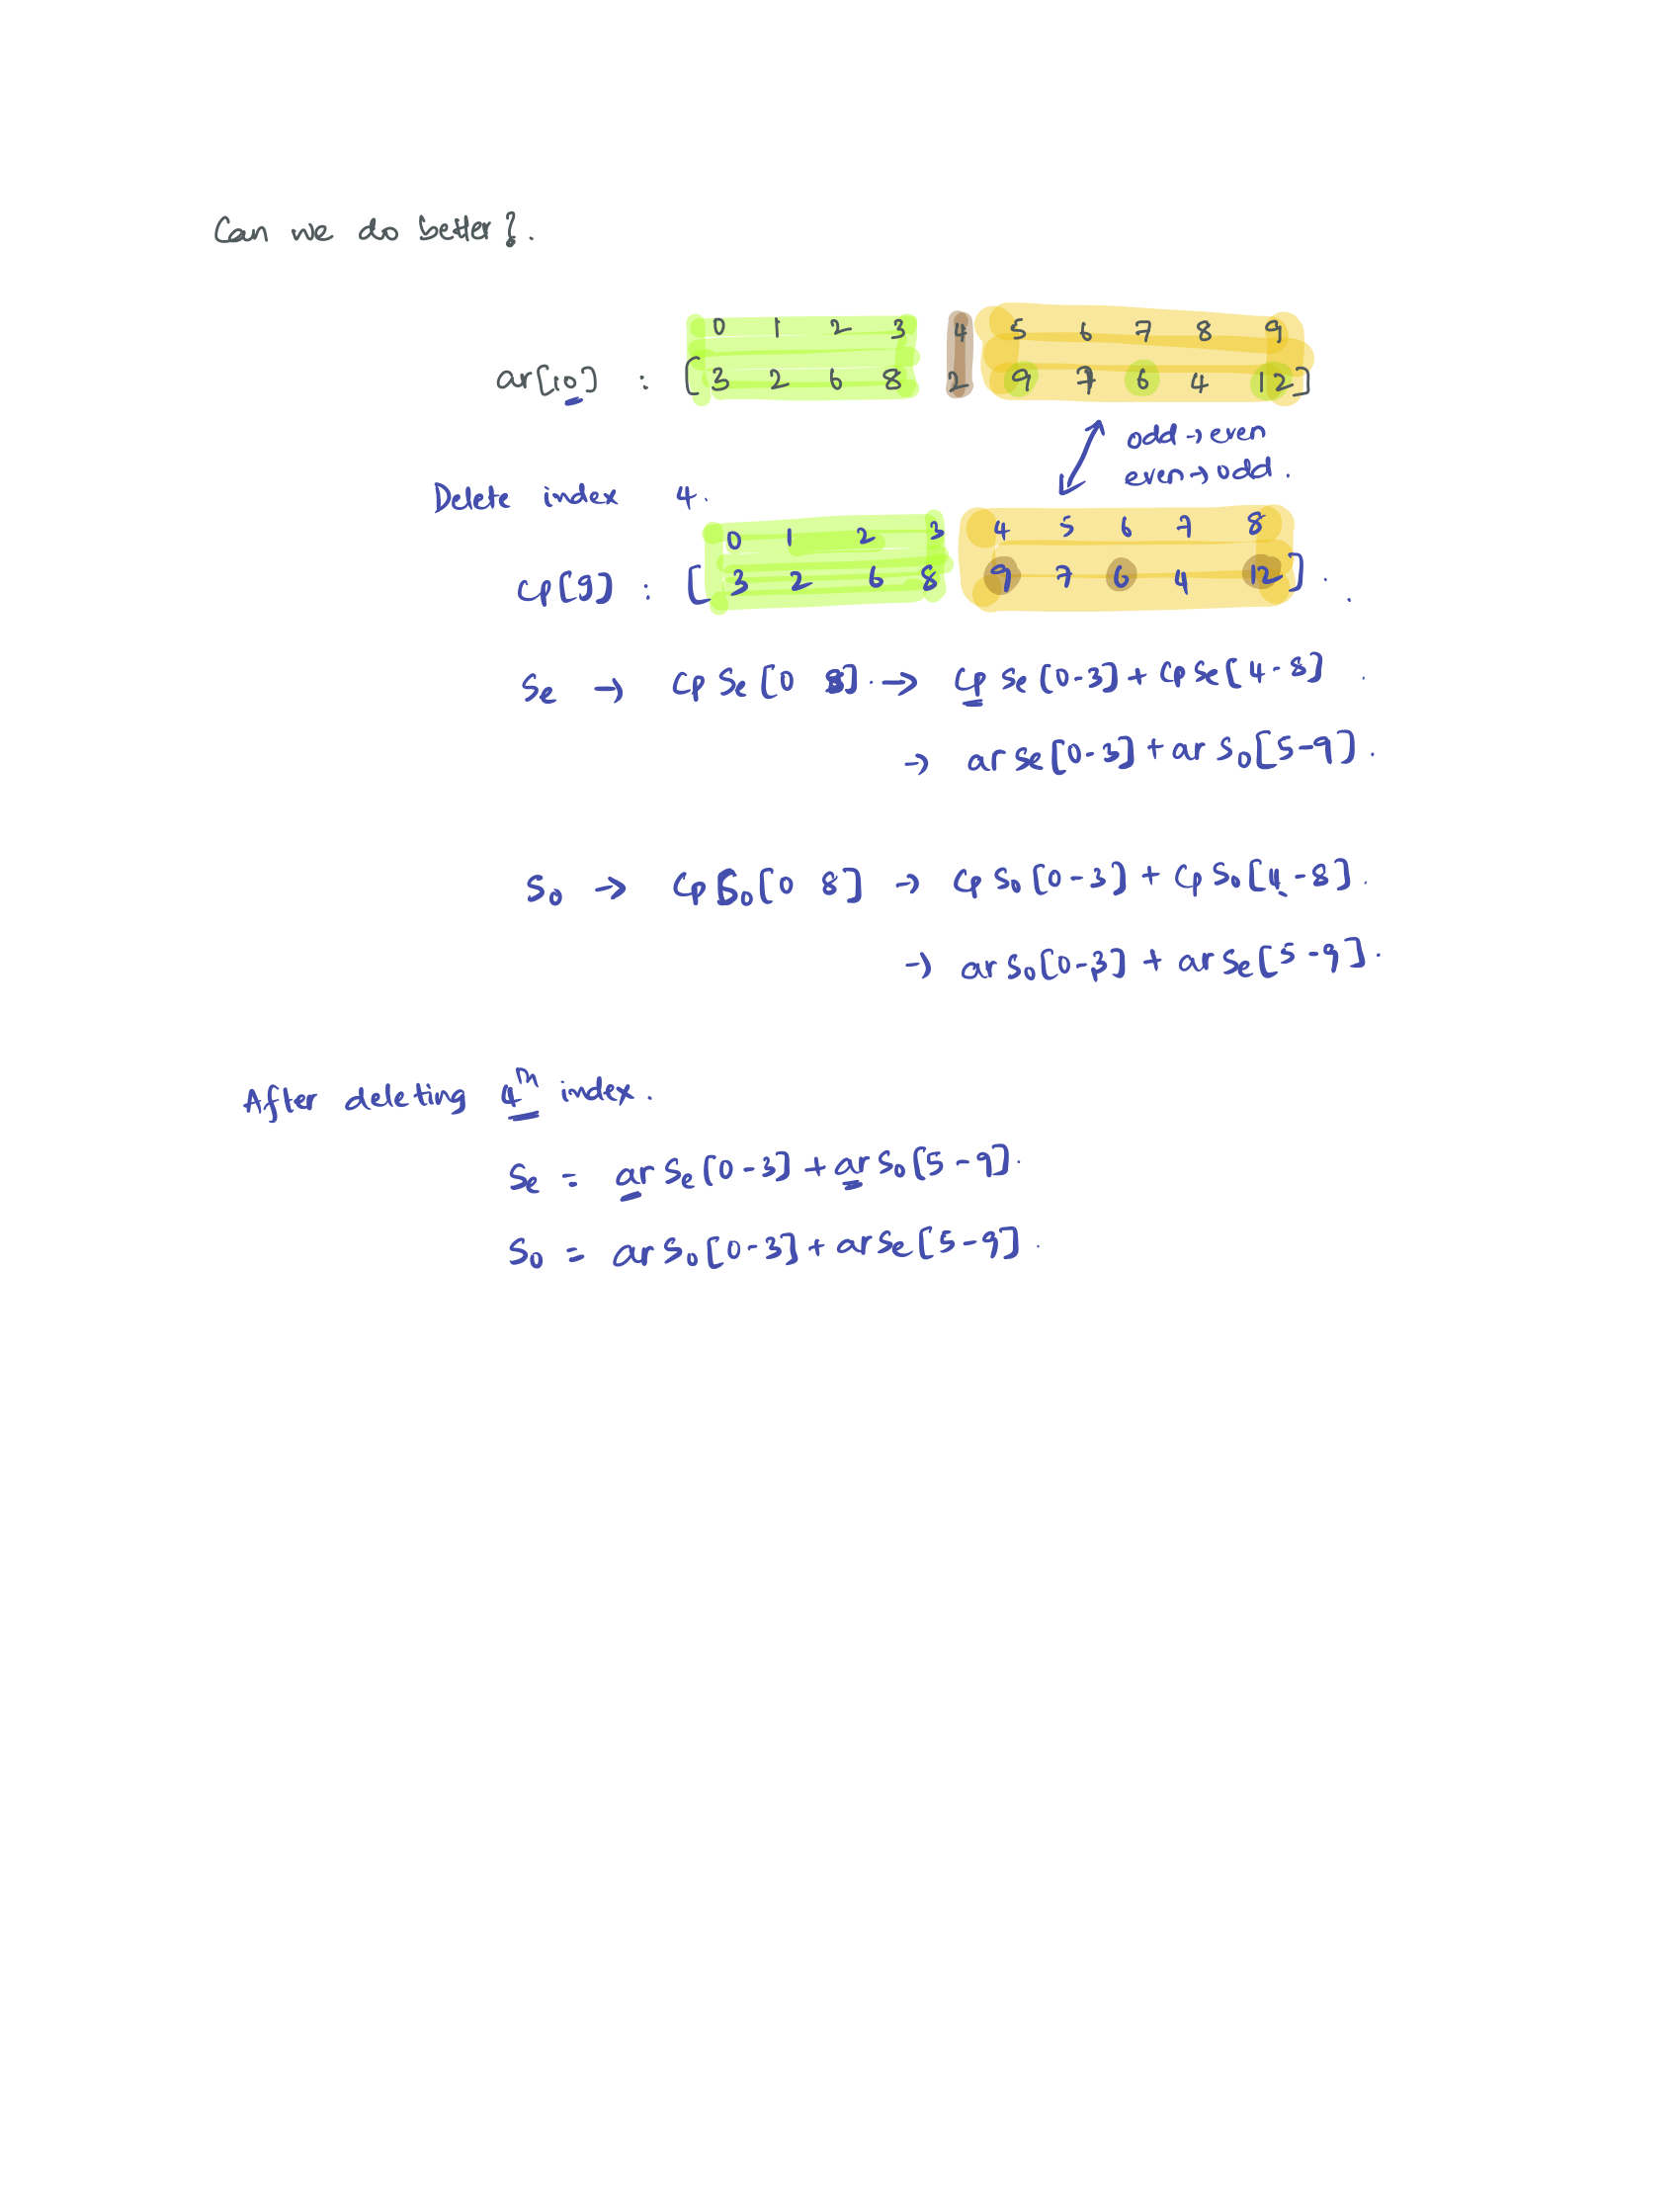 Can we do better?.
0 1 2 3 4 5 6 7 8 9
ar[10] : [3 2 6 8 2 9 7 6 4 12]
odd → even
even → odd.
Delete index 4.
0 1 2 3 4 5 6 7 8
cp[9] : [3 2 6 8 9 7 6 4 12].
Se → cp Se [0 8]. → cp Se [0-3] + cp Se[4-8]
→ ar Se[0-3] + ar So[5-9].
So → cp So[0 8] → cp So[0-3] + cp So[4-8].
→ ar So[0-3] + ar Se[5-9].
After deleting 4th index.
Se = ar Se[0-3] + ar So[5-9].
So = ar So[0-3] + ar Se[5-9].